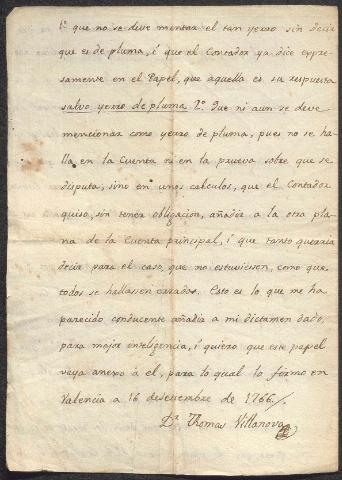 1º que no se deve mentar el tan yerro sin decir
que es de pluma, í que el Contador ya dice expre-
samente en el Papel, que aquella es su respuesta
salvo yerro de pluma 2º. Que ni aun se deve
mencionar como yerro de pluma, pues no se ha-
lla en la Cuenta ni en la prueva sobre que se
disputa, sino en unos calculos, que el Contador
quiso, sin tener obligacion, añadir a la otra pla-
na de la Cuenta principal, í que tanto querria
decir para el caso, que no estuviesen, como que
todos se hallasen errados. Esto es lo que me ha
parecido conducente añadir a mi dictamen dado,
para mejor inteligencia, í quiero que este papel
vaya anexo à el, para lo qual lo firmo en
Valencia a 16 de setiembre de 1766./.
Dr Thomas Villanova